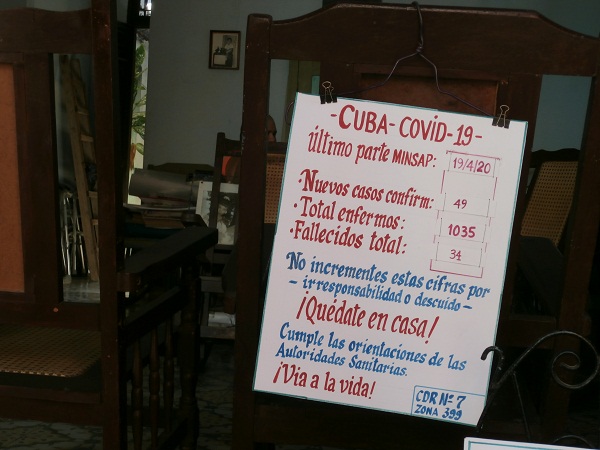 -CUBA-COVID-19-
último parte MINSAP: 19/4/20
·Nuevos casos confirm: 49
·Total enfermos: 1035
·Fallecidos total: 34
No incrementes estas cifras por
- irresponsabilidad o descuido -
¡Quédate en casa!
Cumple las orientaciones de las
Autoridades Sanitarias.
¡Via a la vida!
CDR Nº 7
ZONA 399